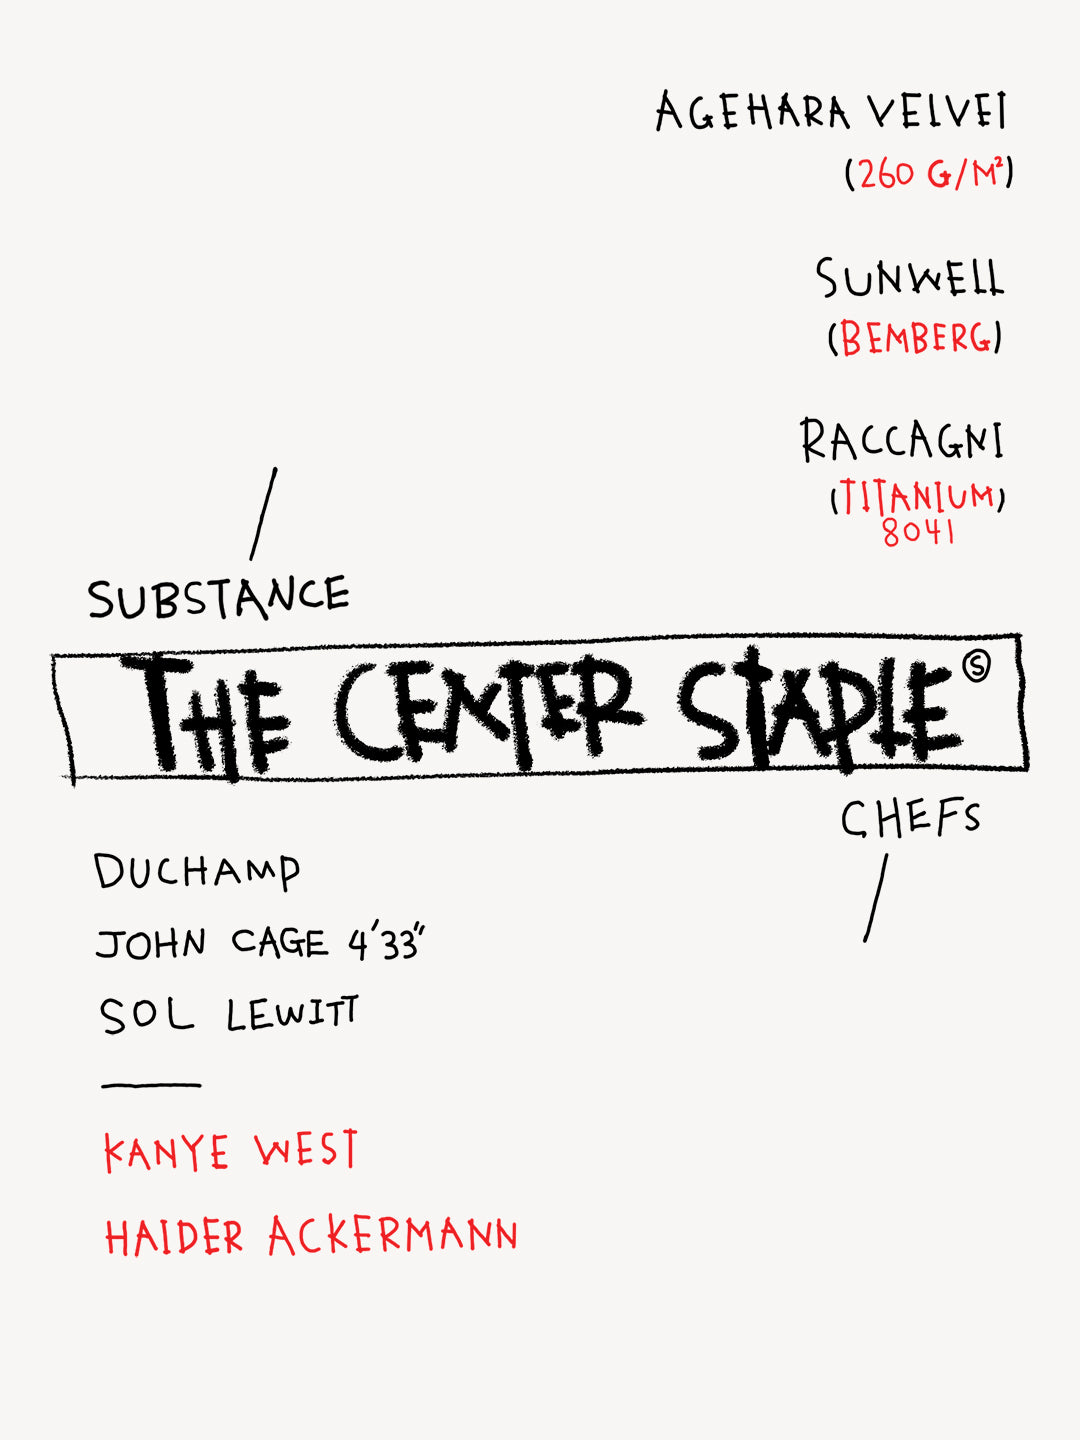 AGEHARA VELVET
(260 G/M²)
SUNWELL
(BEMBERG)
RACCAGNI
(TITANIUM)
8041
SUBSTANCE
THE CENTER STAPLE Ⓢ
CHEFS
DUCHAMP
JOHN CAGE 4'33"
SOL LEWITT
KANYE WEST
HAIDER ACKERMANN